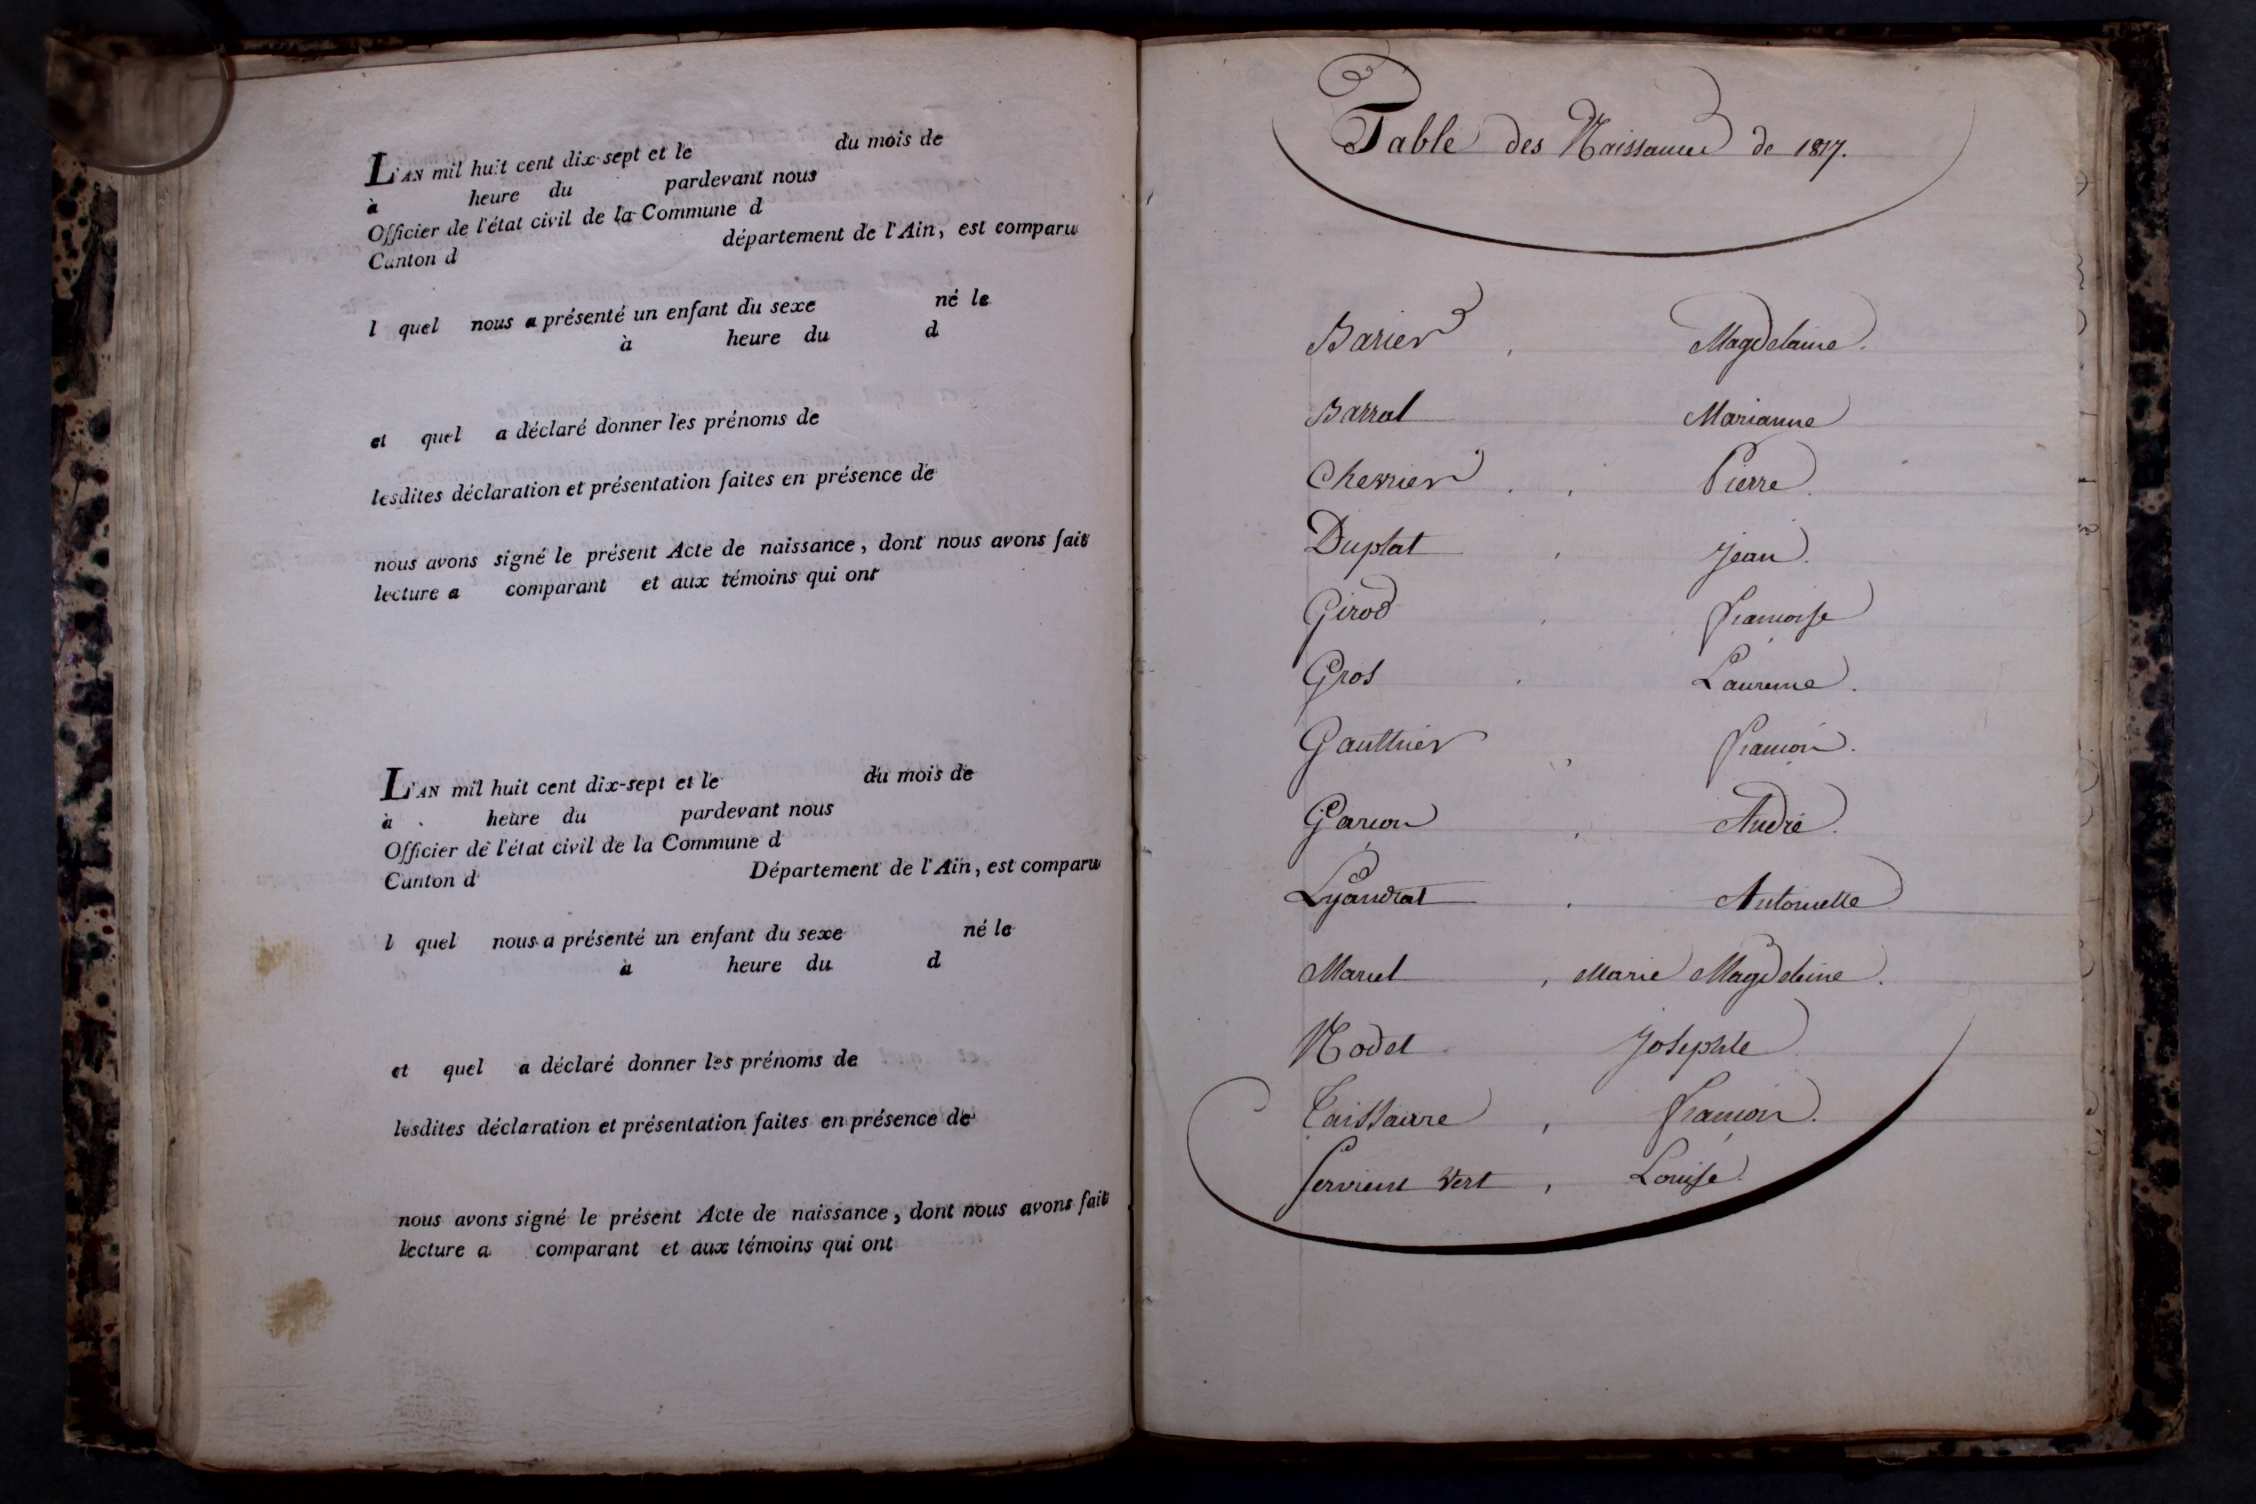 L'AN mil huit cent dix-sept et le du mois de
à heure du pardevant nous
Officier de l'état civil de la Commune d
Canton d département de l'Ain, est comparu
l quel nous a présenté un enfant du sexe né le
à heure du d
et quel a déclaré donner les prénoms de
lesdites déclaration et présentation faites en présence de
nous avons signé le présent Acte de naissance, dont nous avons fait
lecture a comparant et aux témoins qui ont
L'AN mil huit cent dix-sept et le du mois de
à heure du pardevant nous
Officier de l'état civil de la Commune d
Canton d Département de l'Ain, est comparu
l quel nous a présenté un enfant du sexe né le
à heure du d
et quel a déclaré donner les prénoms de
lesdites déclaration et présentation faites en présence de
nous avons signé le présent Acte de naissance, dont nous avons fait
lecture a comparant et aux témoins qui ont
Table des Naissances de 1817.
Barier, Magdelaine.
Barral Marianne
Cherrier, Pierre.
Duplat, Jean.
Girod, Françoise
Gros, Laurence.
Gauthier, François.
Garçon, André.
Lyaudrat, Antoinette
Marcel, Marie Magdeleine.
Nodet Josephte
Taissaire, François.
Servient Vert, Louise.